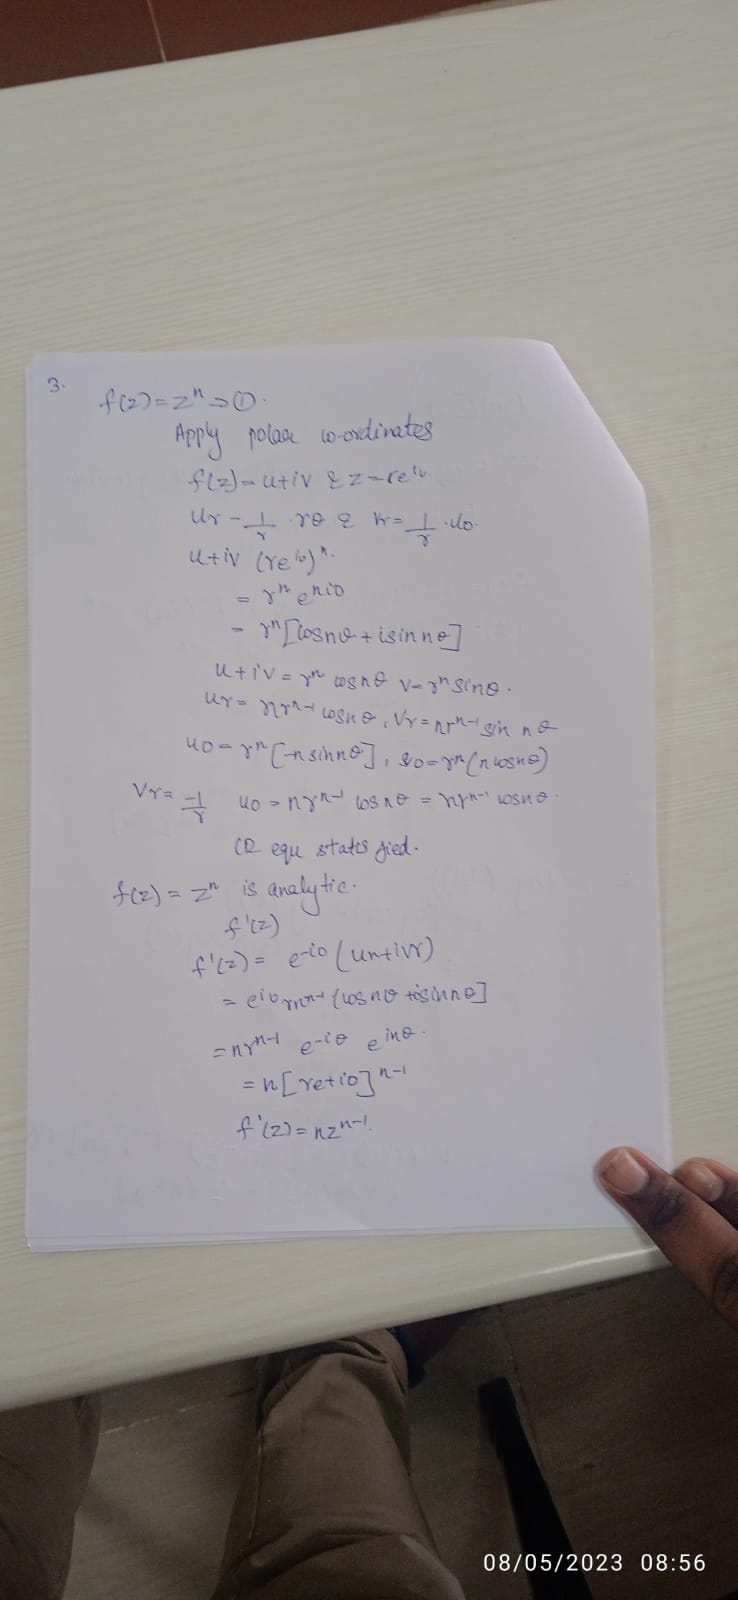 3.
f(z) = zⁿ → ①.
Apply polar co-ordinates
f(z) = u+iv & z = re^iv
ur - 1/r · rθ & vr = 1/r · u0.
u+iv (re^iθ)ⁿ.
= rⁿ e^niθ
= rⁿ [cosnθ + isin nθ]
u+iv = rⁿ cosnθ v = rⁿ sinθ.
ur = nrⁿ⁻¹ cosnθ, Vr = nrⁿ⁻¹ sin nθ
u0 = rⁿ [-nsinnθ], = rⁿ (n cosnθ)
Vr = -1/r u0 = nrⁿ⁻¹ cosnθ = nrⁿ⁻¹ cosnθ.
CR equ statisfied.
f(z) = zⁿ is analytic.
f'(z)
f'(z) = e-iθ (ur+ivr)
= eiθ nrⁿ⁻¹ (cosnθ + isinnθ]
= nrⁿ⁻¹ e-iθ einθ.
= n[re+iθ]ⁿ⁻¹
f'(z) = nzⁿ⁻¹.
08/05/2023 08:56